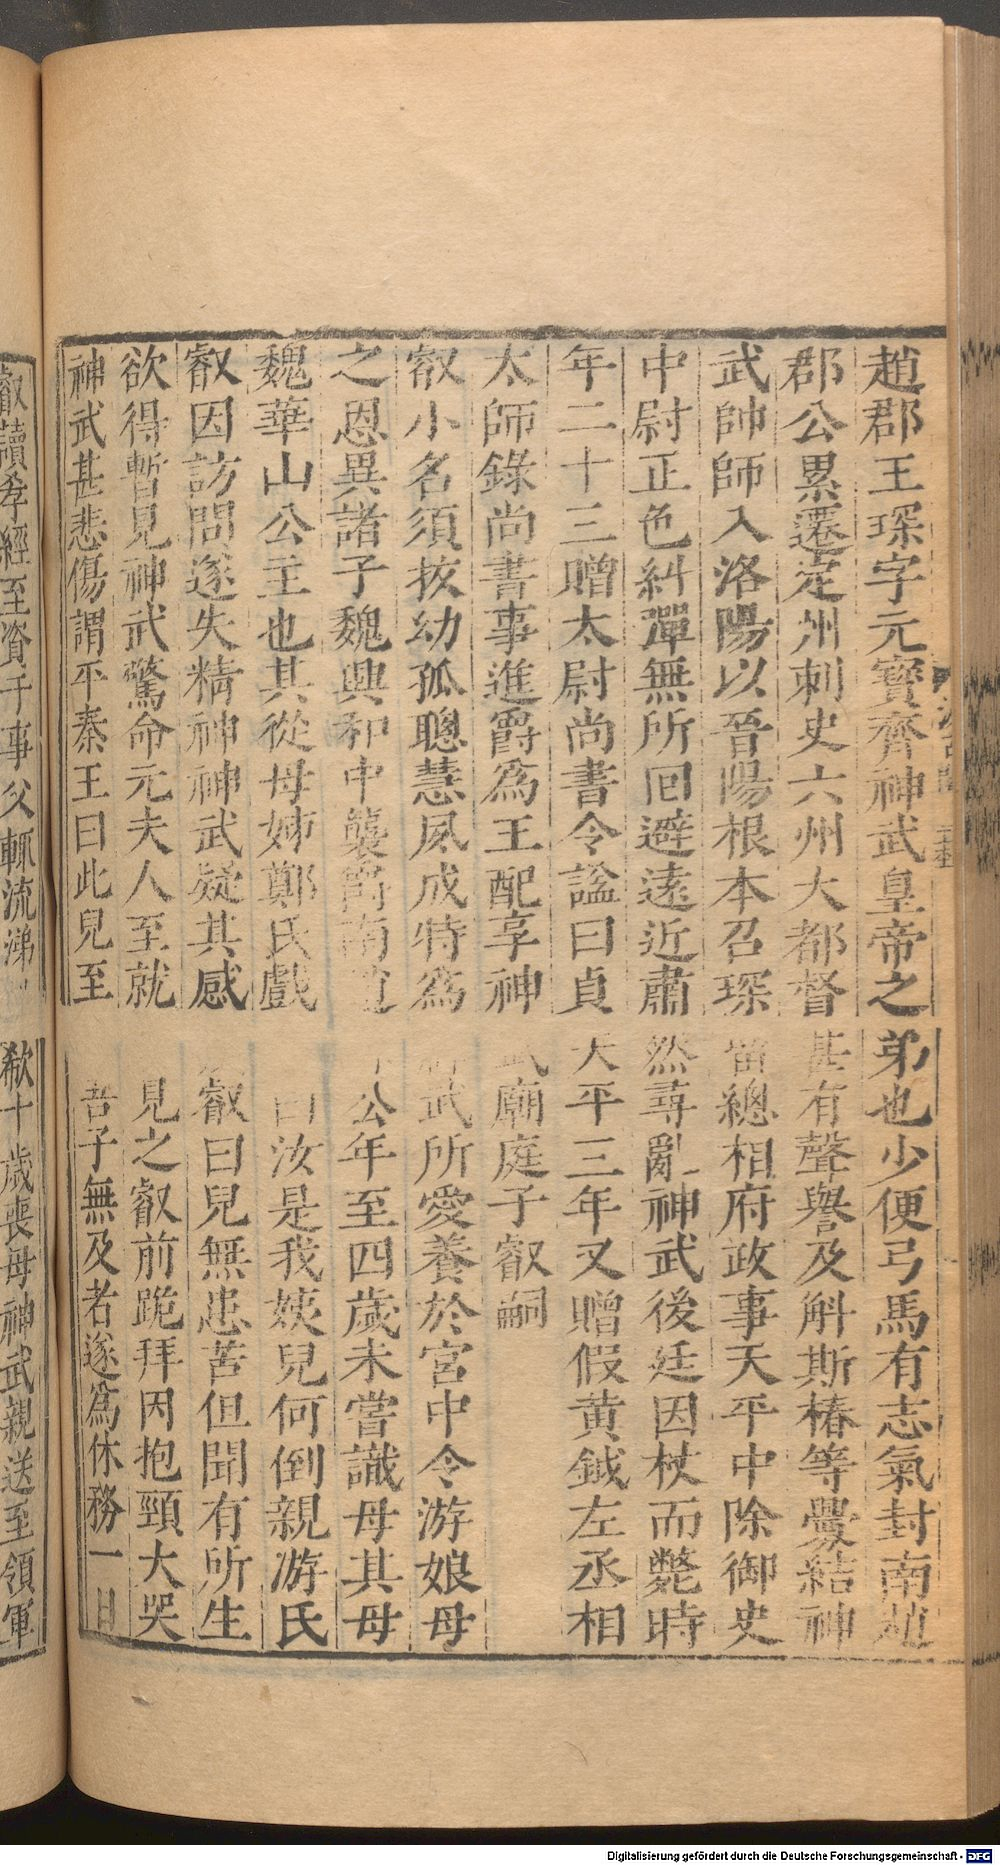 趙郡王琛字元寶齊神武皇帝之弟也少便弓馬有志氣封南趙
郡公累遷定州刺史六州大都督甚有聲譽及斛斯椿等釁結神
武帥師入洛陽以晉陽根本召琛留總相府政事天平中除御史
中尉正色糾彈無所回避遠近肅然尋亂神武後廷因杖而斃時
年二十三贈太尉尚書令諡曰貞天平三年又贈假黃鉞左丞相
太師錄尚書事進爵爲王配享神武廟庭子叡嗣
叡小名須拔幼孤聰慧夙成特爲神武所愛養於宮中令游娘母
之恩異諸子魏興和中襲爵南趙郡公年至四歲未嘗識母其母
魏華山公主也其從母姊鄭氏戲曰汝是我姨兒何倒親游氏
叡因訪問遂失精神神武疑其感叡曰兒無患苦但聞有所生
欲得暫見神武驚命元夫人至就見之叡前跪拜因抱頸大哭
神武甚悲傷謂平秦王曰此兒至吾子無及者遂爲休務一日
叡讀孝經至資于事父輒流涕 欷十歲喪母神武親送至領軍
Digitalisierung gefördert durch die Deutsche Forschungsgemeinschaft - DFG